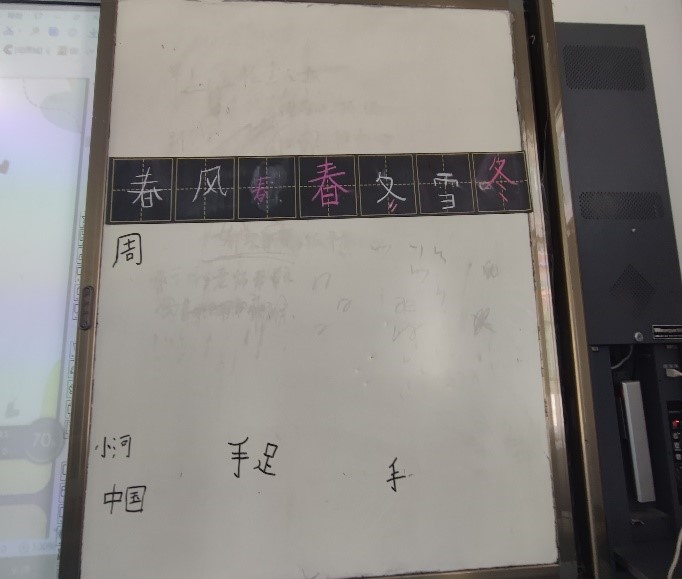 春风春春冬雪冬
周
小河
手足
手
中国